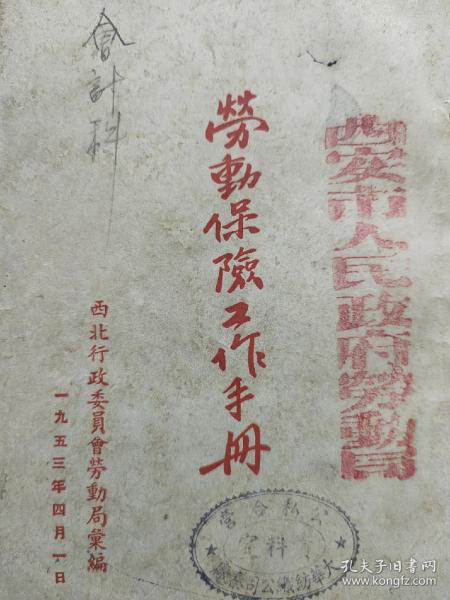 西安市人民政府勞動局
勞動保險工作手冊
會計科
西北行政委員會勞動局彙編
一九五三年四月一日
公私合營
料室
大華紡織公司秦廠
孔夫子旧书网